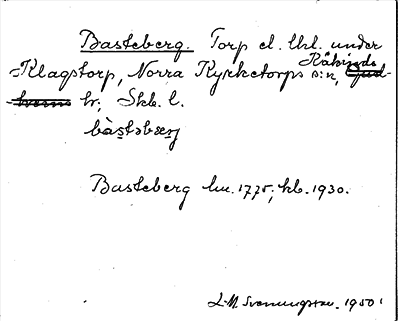 Basteberg. Torp el. lhl. under
Klagstorp, Norra Kyrketorps s:n, Kåkinds
hr; Skb. l.
bàstəbærj
Basteberg hu. 1775, kb. 1930.
L-M. Svenungsson. 1950